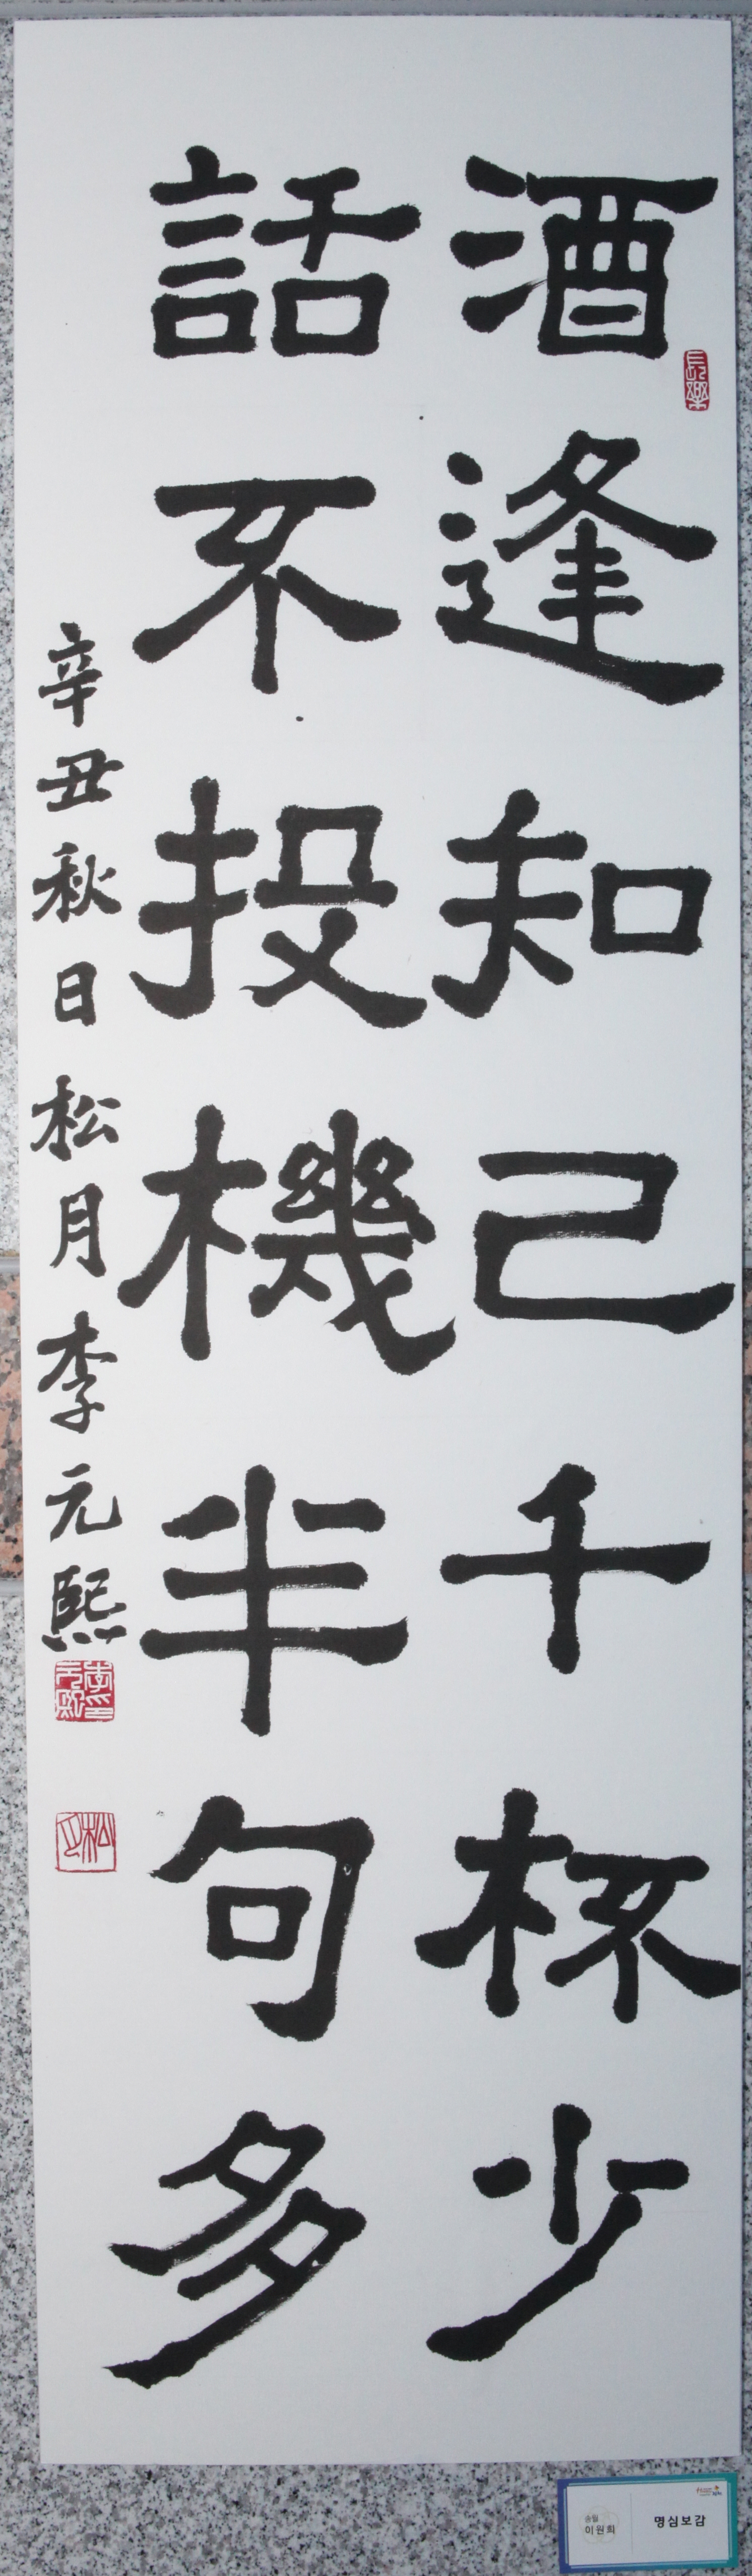 酒逢知己千杯少
話不投機半句多
辛丑秋日松月李元熙
長樂
李元熙印
송월
이원희
명심보감